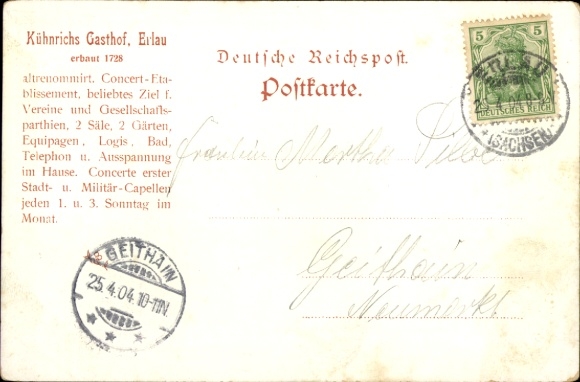 Kühnrichs Gasthof, Erlau
erbaut 1728
altrenommirt. Concert-Eta-
blissement, beliebtes Ziel f.
Vereine und Gesellschafts-
parthien, 2 Säle, 2 Gärten,
Equipagen, Logis, Bad,
Telephon u. Ausspannung
im Hause. Concerte erster
Stadt- u. Militär-Capellen
jeden 1. u. 3. Sonntag im
Monat.
Deutsche Reichspost.
Postkarte.
5 5
DEUTSCHES REICH
ERLAU
25.4.04
* (SACHSEN)
Fräulein Martha
Geithain
Neumarkt
GEITHAIN
25.4.04.10-11N.
* * *